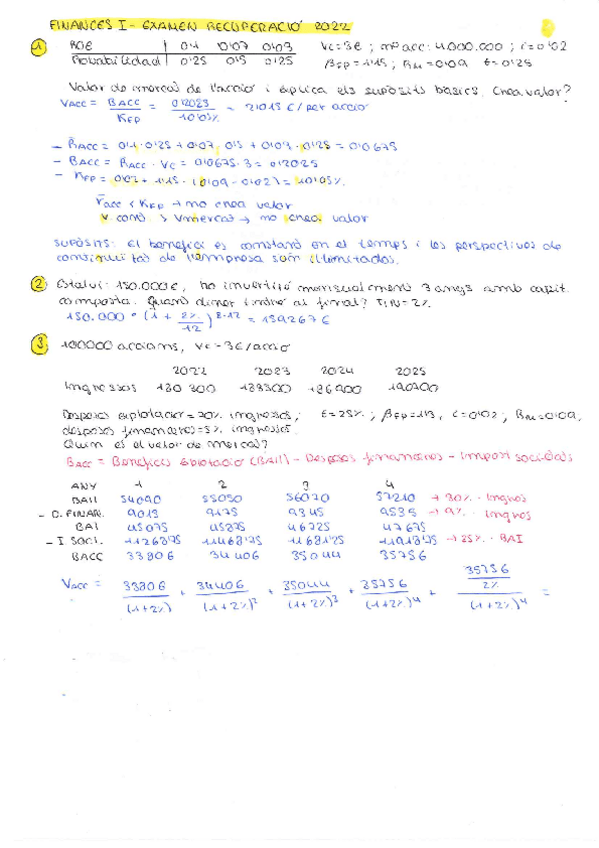 FINANCES I - EXAMEN RECUPERACIÓ 2022
1 ROE 0'1 0'07 0'03 Vc=3€ ; nº acc: 4.000.000 ; i=0'02
Probabilidad 0'25 0'5 0'25 βFP=1'15 ; RM=0'09 t=0'25
Valor de mercat de l'acció i explica els supòsits bàsics. Crea valor?
VACC = BACC / KFP = 0'2025 / 10'05% = 2'015 €/per acció
- BACC = RACC · Vc = 0'0675 · 3 = 0'2025
- KFP = 0'02 + 1'15 · (0'09 - 0'02) = 10'05%
racc < KFP → no crea valor
V cont. > Vmercat → no crea valor
SUPÒSITS: El benefici es constant en el temps i les perspectives de
continuitat de l'empresa són il·limitades.
2 Estalvi: 150.000€, ho invertiré mensualment 3 anys amb capit.
composta. Quant diner tindré al final? TIN=2%
3 100000 accions, Vc=3€/acció
2022 2023 2024 2025
Ingressos 180 300 183500 186900 190700
Despeses explotació=70% ingressos; t=25% ; βFP=1'3, i=0'02 ; RM=0'09,
despeses financeres=5% ingressos.
Quin es el valor de mercat?
BACC = Benefici explotació (BAII) - Despeses financeres - Impost societats
ANY 1 2 3 4
BAII 54090 55050 56070 57210 → 30% · Ingres
- C. FINAN. 9015 9175 9345 9535 → 5% · Ingres
BAI 45075 45875 46725 47675
- I SOCI. 11268'75 11468'75 11681'75 11918'75 → 25% · BAI
BACC 33806 34406 35044 35756
VACC = 33806 / (1+2%) + 34406 / (1+2%)² + 35044 / (1+2%)³ + 35756 / (1+2%)⁴ + 35756 / 2% / (1+2%)⁴ =